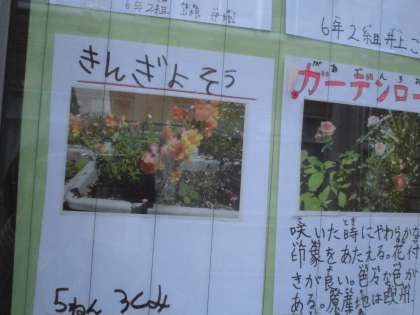 6年2組
6年2組 井上
きんぎょそう
ガーデンロー
5ねん 3くみ
咲いた時にやわらかな
印象をあたえる。花付
きが良い。色々な色が
ある。原産地は欧州